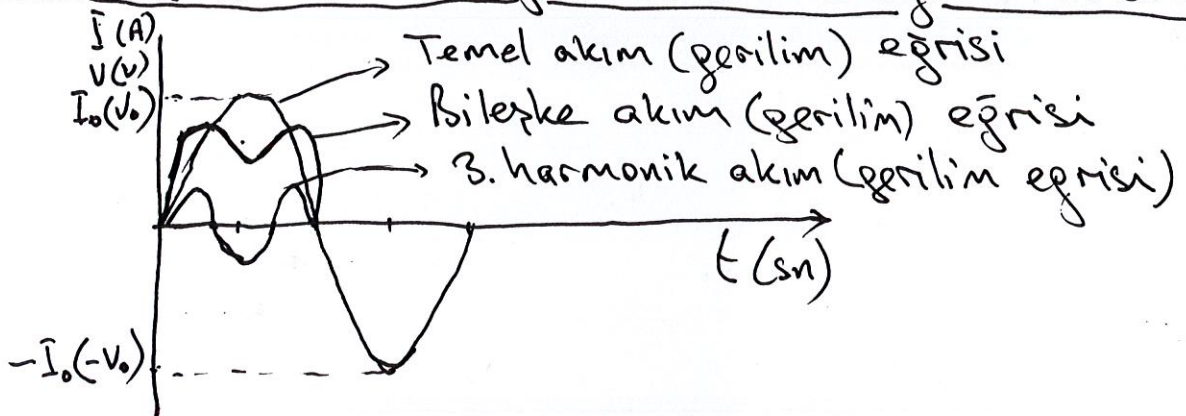 I(A)
V(v)
I₀(V₀)
Temel akım (gerilim) eğrisi
Bileşke akım (gerilim) eğrisi
3. harmonik akım (gerilim egrisi)
t (sn)
-I₀(-V₀)